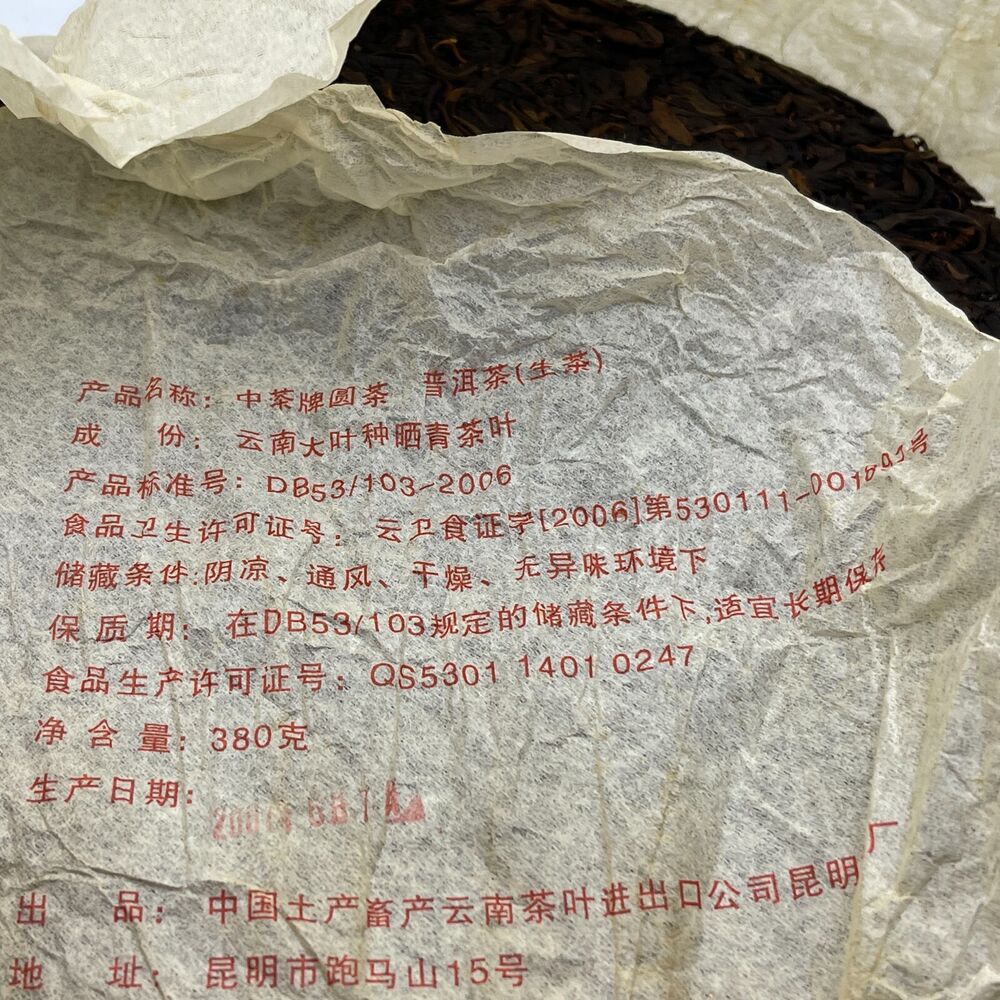 产品名称：中茶牌圆茶 普洱茶(生茶)
成 份：云南大叶种晒青茶叶
产品标准号：DB53/103-2006
食品卫生许可证号：云卫食证字[2006]第530111-
储藏条件:阴凉、通风、干燥、无异味环境下
保 质 期：在DB53/103规定的储藏条件下,适宜长期保存
食品生产许可证号：QS5301 1401 0247
净 含 量：380克
生产日期：
出 品：中国土产畜产云南茶叶进出口公司昆明厂
地 址：昆明市跑马山15号